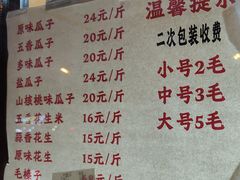 原味瓜子 24元/斤
五香瓜子 20元/斤
多味瓜子 20元/斤
盐瓜子 24元/斤
山核桃味瓜子 20元/斤
五香花生米 16元/斤
蒜香花生 15元/斤
原味花生 15元/斤
毛榛子
温馨提示
二次包装收费
小号2毛
中号3毛
大号5毛